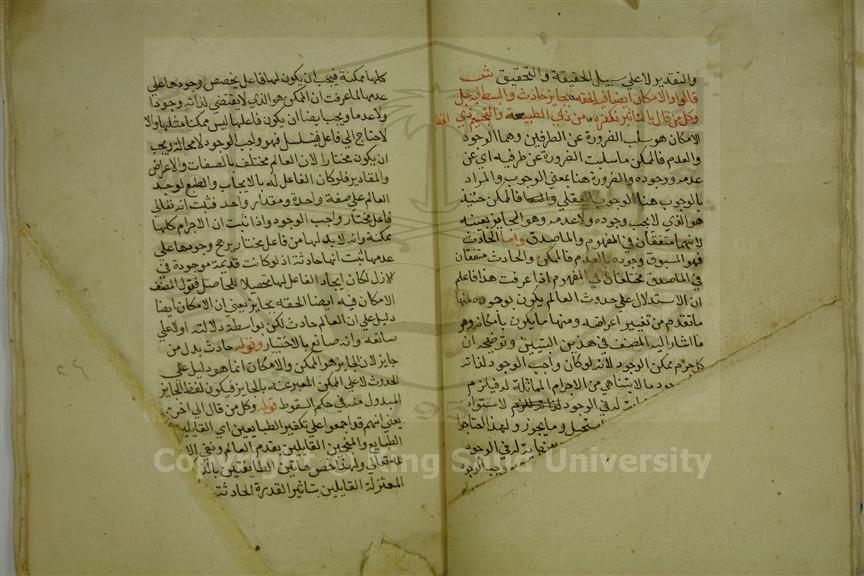 والتقدير لا على سبيل الحقيقة والتحقيق ش
قالوا والامكان ايضا فيه الحقه بجايز حادث والبسط الرجل
وكل من قال بالتاثير نكفره من ذي الطبيعه والتنجيم ذي
الامكان هو سلب الضرورة عن الطرفين وهما الوجود
والعدم فالممكن ما سلبت الضرورة عن طرفيه اي عن
عدمه ووجوده والضرورة هنا بمعنى الوجوب والمراد
بالوجوب هنا الوجوب العقلي فالممكن حينئذ
هو الذي لا يجب وجوده ولا عدمه وهو الجايز بعينه
لانهما متفقان في المفهوم والماصدق واما الحادث
فهو المسبوق وجوده بالعدم فالممكن والحادث متفقان
في الماصدق مختلفان في المفهوم اذا عرفت هذا فاعلم
ان الاستدلال على حدوث العالم يكون بوجوه منها
ما تقدم من تغيير اعراضه ومنها ما يكون بامكانه وهو
ما اشار اليه المصنف في هذين البيتين وتوضيحه ان
كل جرم ممكن الوجود لانه لو كان واجب الوجود لذاته
ما لا يتناهي من الاجرام المماثلة له فيلزم
له في الوجود لاستواء
ما يستحيل وما يجوز ولهذا
له في الوجود
وجب الوجود
كلها ممكنة فيجب ان يكون لها فاعل يخصص وجودها على
عدمها لما عرفت ان الممكن هو الذي لا يقتضي لذاته وجودا
ولا عدما ويجب ايضا ان يكون فاعلها ليس ممكنا مثلها والا
لاحتاج الى فاعل فيتسلسل فهو واجب الوجود لا محالة ويجب
ان يكون مختارا لان العالم مختلف بالصفات والاعراض
والمقادير فلو كان الفاعل له بالايجاب والطبع لوجد
العالم على صفة واحدة ومقدار واحد فثبت انه تعالى
فاعل مختار واجب الوجود واذا ثبت ان الاجرام كلها
ممكنة وانه لا بد لها من فاعل مختار يرجح وجودها على
عدمها ثبت انها حادثة اذ لو كانت قديمة موجودة في
الازل لكان ايجاد الفاعل لها تحصيلا للحاصل فقول المصنف
الامكان فيه ايضا الحقه بجايز يعني ان الامكان ايضا
دليل على ان العالم حادث لكن بواسطة دلالته اولا على
سالفه وانه صانع بالاختيار وقوله حادث بدل من
جايز لان الجايز هو الممكن والامكان انما هو دليل على
الحدوث لا على الممكن المعبر عنه بالجايز فيكون لفظ الجايز
المبدول منه في حكم السقوط قوله وكل من قال الى اخره
يعني انهم قد اجمعوا على تكفير الطبايعين اي القايلين
الطبايع والمنجمين القايلين بقدم العالم ونفي
تعالى ولهذا خص هاتين الطايفتين
المعتزلة القايلين بتاثير القدرة الحادثة
Copyright © King Saud University
195